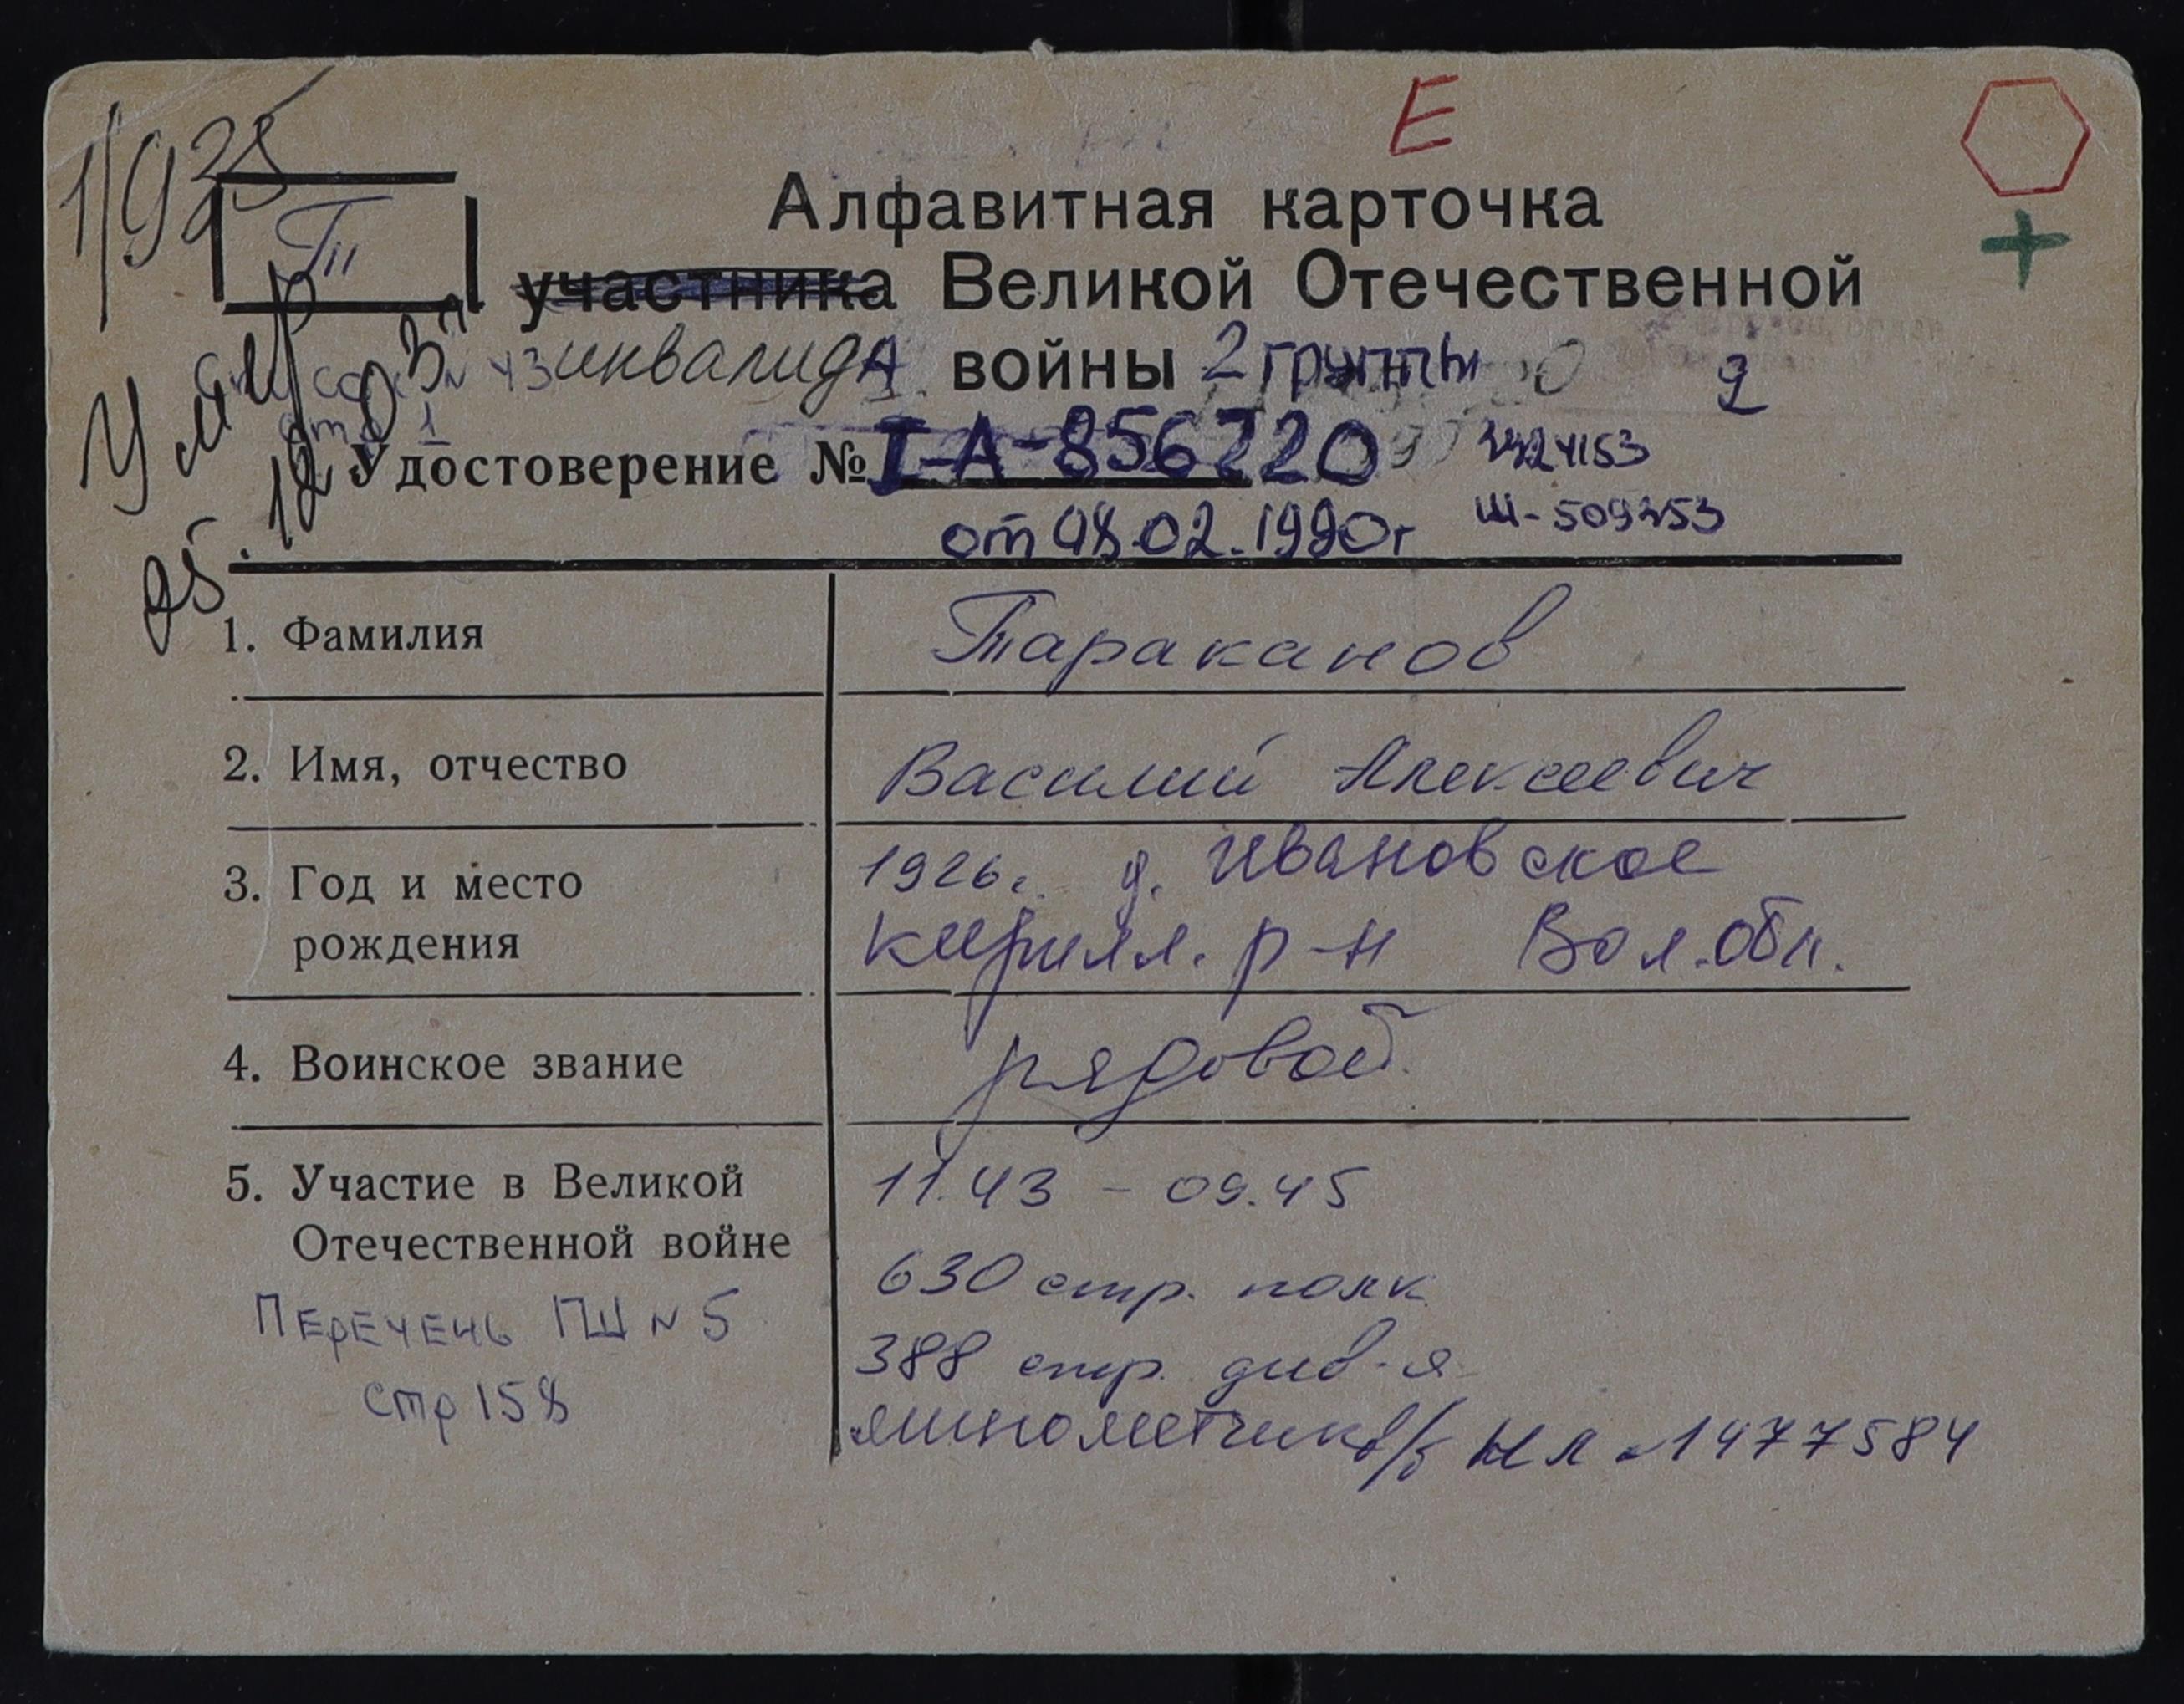 Е
Алфавитная карточка
участника Великой Отечественной
инвалидА войны 2 группы
2
Удостоверение № I-А-856220
2424153
от 08.02.1990г
Ш-509253
Умер
25.12.03г
1. Фамилия
Тараканов
2. Имя, отчество
Василий Алексеевич
3. Год и место
рождения
1926г. д. Ивановское
Кирилл. р-н Вол. обл.
4. Воинское звание
рядовой
5. Участие в Великой
Отечественной войне
11.43 - 09.45
630 стр. полк
388 стр. див-я
минометчик в/б НЛ 1477584
Перечень ПШ N 5
стр 158